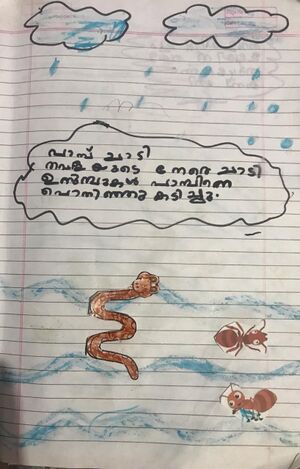 പാമ്പ് ചാടി
തവളയുടെ നേരെ ചാടി
ഉറുമ്പുകൾ പാമ്പിനെ
പൊതിഞ്ഞു കടിച്ചു.